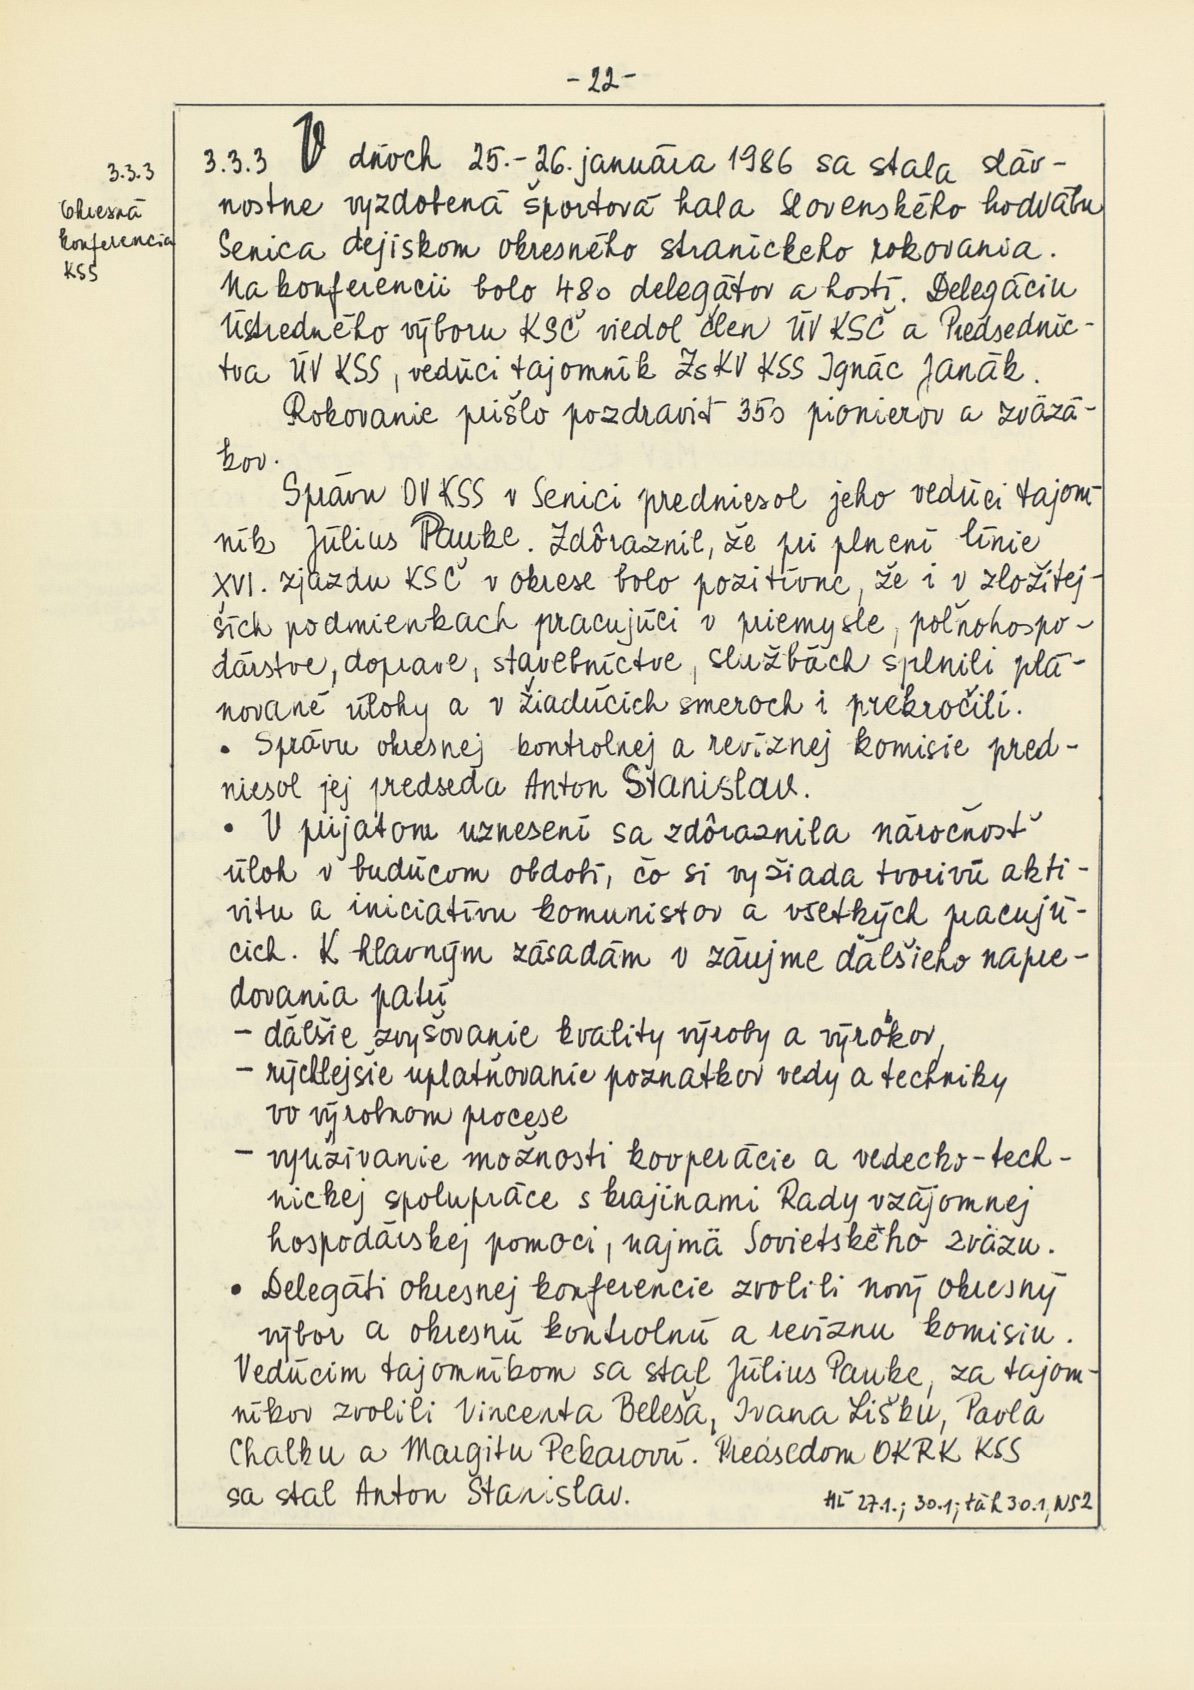 - 22 -
3.3.3
Okresná
konferencia
KSS
3.3.3 V dňoch 25.-26. januára 1986 sa stala sláv-
nostne vyzdobená športová hala Slovenského hodvábu
Senica dejiskom okresného straníckeho rokovania.
Na konferencii bolo 480 delegátov a hostí. Delegáciu
Ústredného výboru KSČ viedol člen ÚV KSČ a Predsedníc-
tva ÚV KSS, vedúci tajomník ZsKV KSS Ignác Janák.
Rokovanie prišlo pozdraviť 350 pionierov a zväzá-
kov.
Správu OV KSS v Senici predniesol jeho vedúci tajom-
ník Július Pauke. Zdôraznil, že pri plnení línie
XVI. zjazdu KSČ v okrese bolo pozitívne, že i v zložitej-
ších podmienkach pracujúci v priemysle, poľnohospo-
dárstve, doprave, stavebníctve, službách splnili plá-
nované úlohy a v žiadúcich smeroch i prekročili.
• Správu okresnej kontrolnej a revíznej komisie pred-
niesol jej predseda Anton Stanislav.
• V prijatom uznesení sa zdôraznila náročnosť
úloh v budúcom období, čo si vyžiada tvorivú akti-
vitu a iniciatívu komunistov a všetkých pracujú-
cich. K hlavným zásadám v záujme ďalšieho napre-
dovania patrí
- ďalšie zvyšovanie kvality výroby a výrobkov,
- rýchlejšie uplatňovanie poznatkov vedy a techniky
vo výrobnom procese
- využívanie možnosti kooperácie a vedecko-tech-
nickej spolupráce s krajinami Rady vzájomnej
hospodárskej pomoci, najmä Sovietského zväzu.
• Delegáti okresnej konferencie zvolili nový okresný
výbor a okresnú kontrolnú a revíznu komisiu.
Vedúcim tajomníkom sa stal Július Pauke, za tajom-
níkov zvolili Vincenta Beleša, Ivana Lišku, Pavla
Chalku a Margitu Pekarovú. Predsedom OKRK KSS
sa stal Anton Stanislav.
HĽ 27.1.; 30.1; táh 30.1, NS2